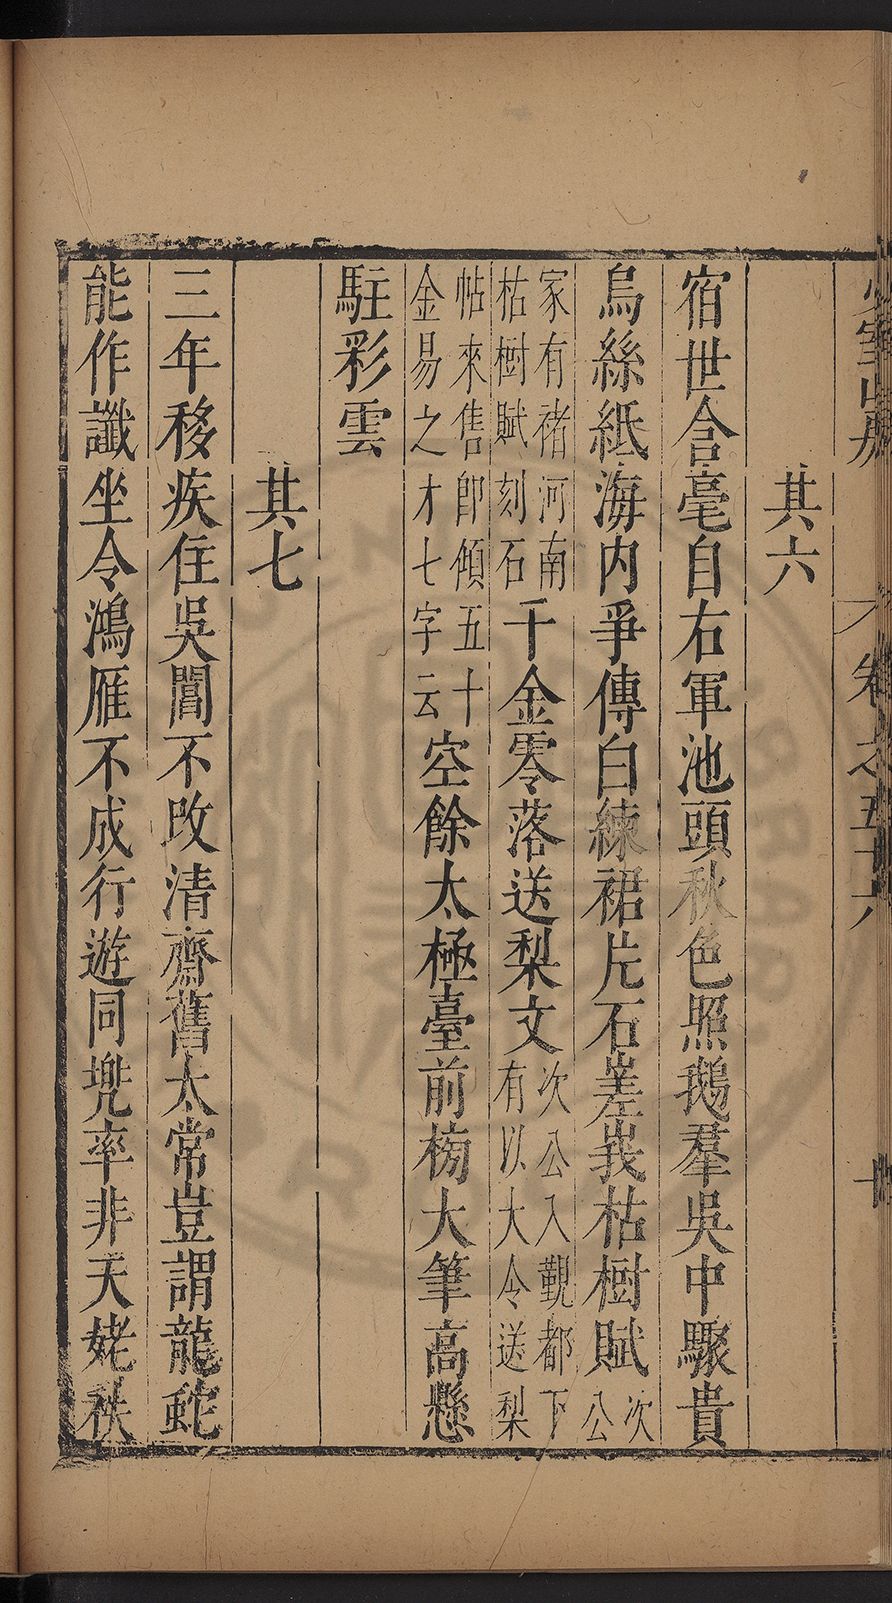 卷之五十六
其六
宿世含毫自右軍池頭秋色照鵝羣吳中驟貴
烏絲紙海内爭傳白練裙片石嵳峩枯樹賦次公
家有褚河南枯樹賦刻石千金零落送梨文次公入覲都下有以大令送梨
帖來售卽傾五十金易之才七字云空餘太極臺前榜大筆高懸
駐彩雲
其七
三年移疾住吳閶不改清齋舊太常豈謂龍蛇
能作讖坐令鴻雁不成行遊同兠率非天姥秩